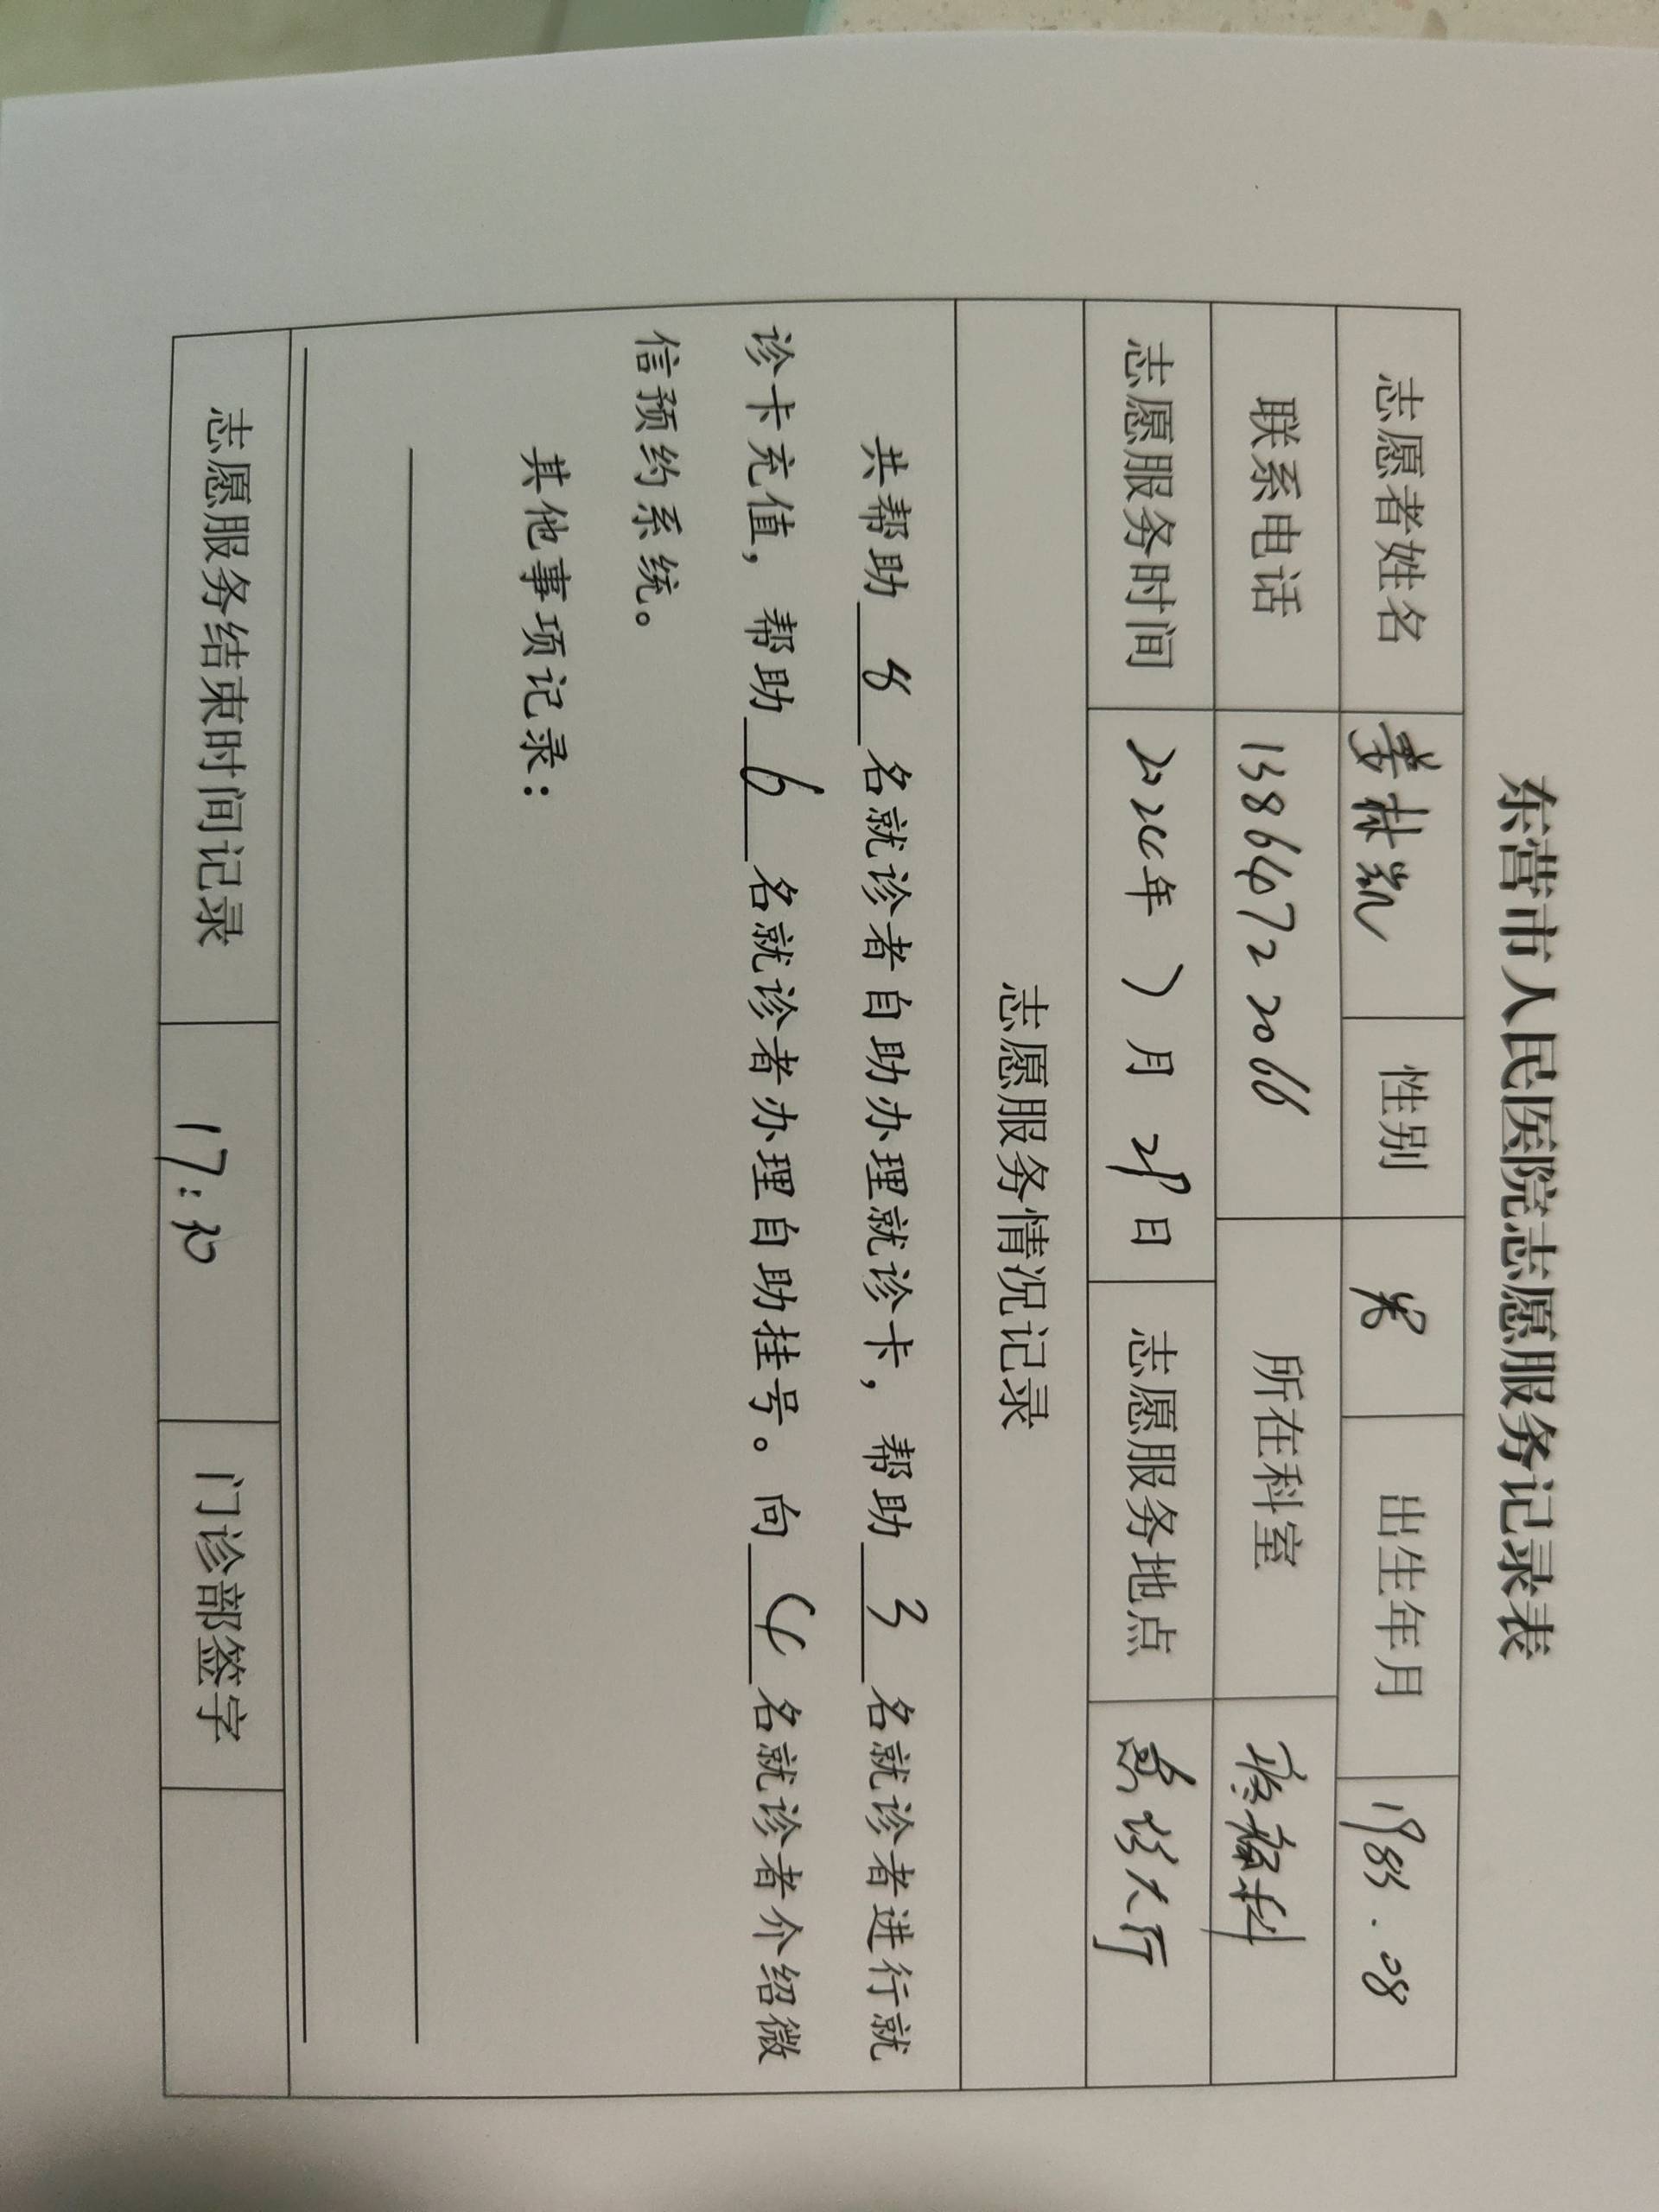 东营市人民医院志愿服务记录表
志愿者姓名 姜林凯 性别 男 出生年月 1983.08
联系电话 13864722066 所在科室 疼痛科
志愿服务时间 2024年7月29日 志愿服务地点 门诊大厅
志愿服务情况记录
共帮助 8 名就诊者自助办理就诊卡，帮助 3 名就诊者进行就
诊卡充值，帮助 6 名就诊者办理自助挂号。向 4 名就诊者介绍微
信预约系统。
其他事项记录：
志愿服务结束时间记录 17:30 门诊部签字